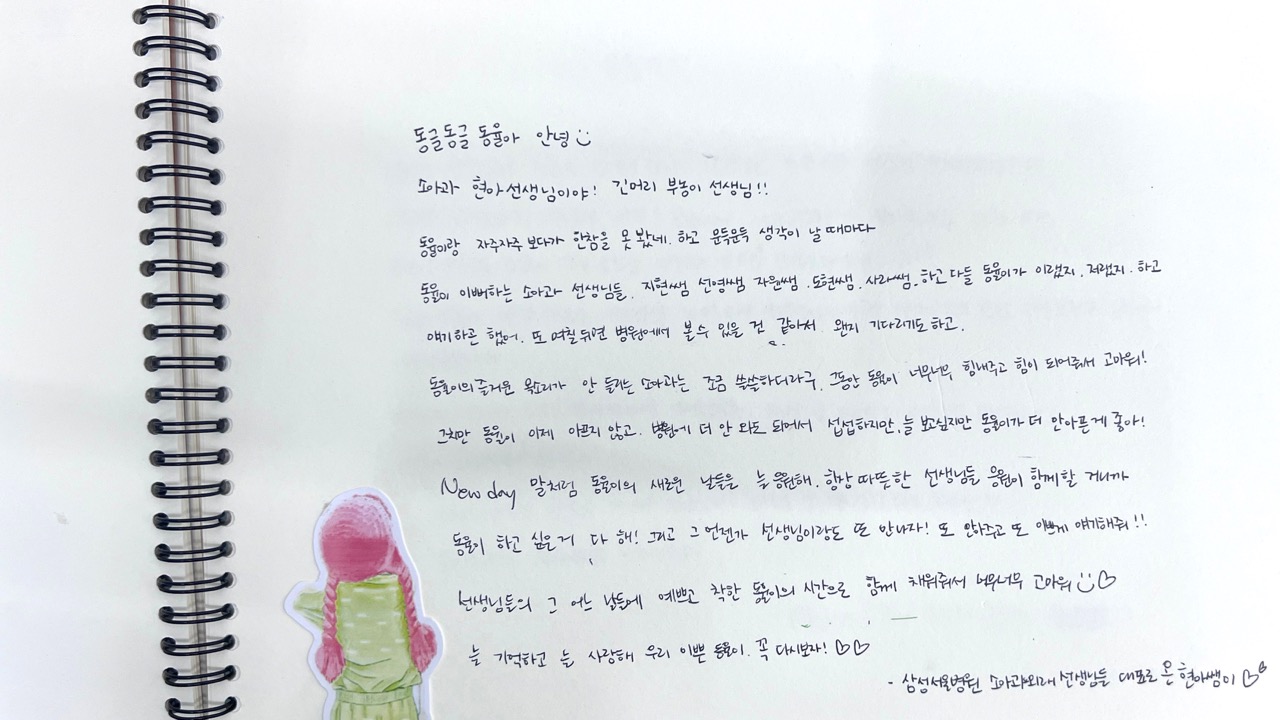 동글동글 동율아 안녕
소아과 현아선생님이야! 긴머리 부농이 선생님!!
동율이랑 자주자주 보다가 한참을 못 봤네. 하고 문득문득 생각이 날 때마다
동율이 이뻐하는 소아과 선생님들, 지현쌤 선영쌤 자윤쌤, 도현쌤, 사라쌤, 하고 다들 동율이가 이랬지, 저랬지, 하고
얘기하곤 했어. 또 며칠 뒤면 병원에서 볼 수 있을 것 같아서 왠지 기다리기도 하고.
동율이의 즐거운 목소리가 안 들리는 소아과는 조금 쓸쓸하더라구, 그동안 동율이 너무너무 힘내주고 힘이 되어줘서 고마워!
그치만 동율이 이제 아프지 않고, 병원에 더 안 와도 되어서 섭섭하지만, 늘 보고싶지만 동율이가 더 안아픈게 좋아!
New day 말처럼 동율이의 새로운 날들을 늘 응원해. 항상 따뜻한 선생님들 응원이 함께할 거니까
동율이 하고 싶은거 다 해! 그리고 그 언젠가 선생님이랑도 또 만나자! 또 안아주고 또 이쁘게 얘기해줘!!
선생님들의 그 어느 날들에 예쁘고 착한 동율이의 시간으로 함께 채워줘서 너무너무 고마워
늘 기억하고 늘 사랑해 우리 이쁜 동율이. 꼭 다시보자!
- 삼성서울병원 소아과외래 선생님들 대표로 은 현아쌤이